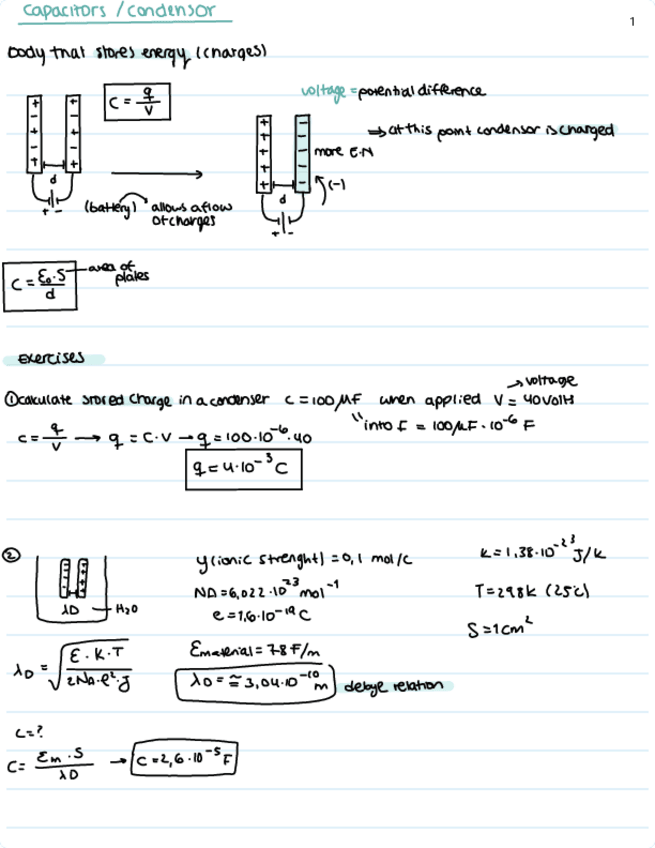 capacitors / condensor
1
body that stores energy (charges)
C = q/V
voltage = potential difference
⇒ at this point condensor is charged
more E.N
(-)
d
d
+ -
+ -
(battery) allows a flow
of charges
C = ε₀·S/d
area of
plates
Exercises
① calculate stored charge in a condenser C = 100 μF when applied V = 40 volt
→ voltage
C = q/V → q = C·V → q = 100·10⁻⁶·40
"into F = 100 μF·10⁻⁶ F
q = 4·10⁻³ C
②
y (ionic strenght) = 0,1 mol/c
k = 1,38·10⁻²³ J/k
NA = 6,022·10²³ mol⁻¹
T = 298k (25c)
λD
H₂O
e = 1,6·10⁻¹⁹ C
S = 1cm²
λD = √(ε·K·T / 2NA·e²·J)
εmaterial = 78 F/m
λD = ≅ 3,04·10⁻¹⁰ m debye relation
C = ?
C = εm·S/λD → C = 2,6·10⁻⁵ F